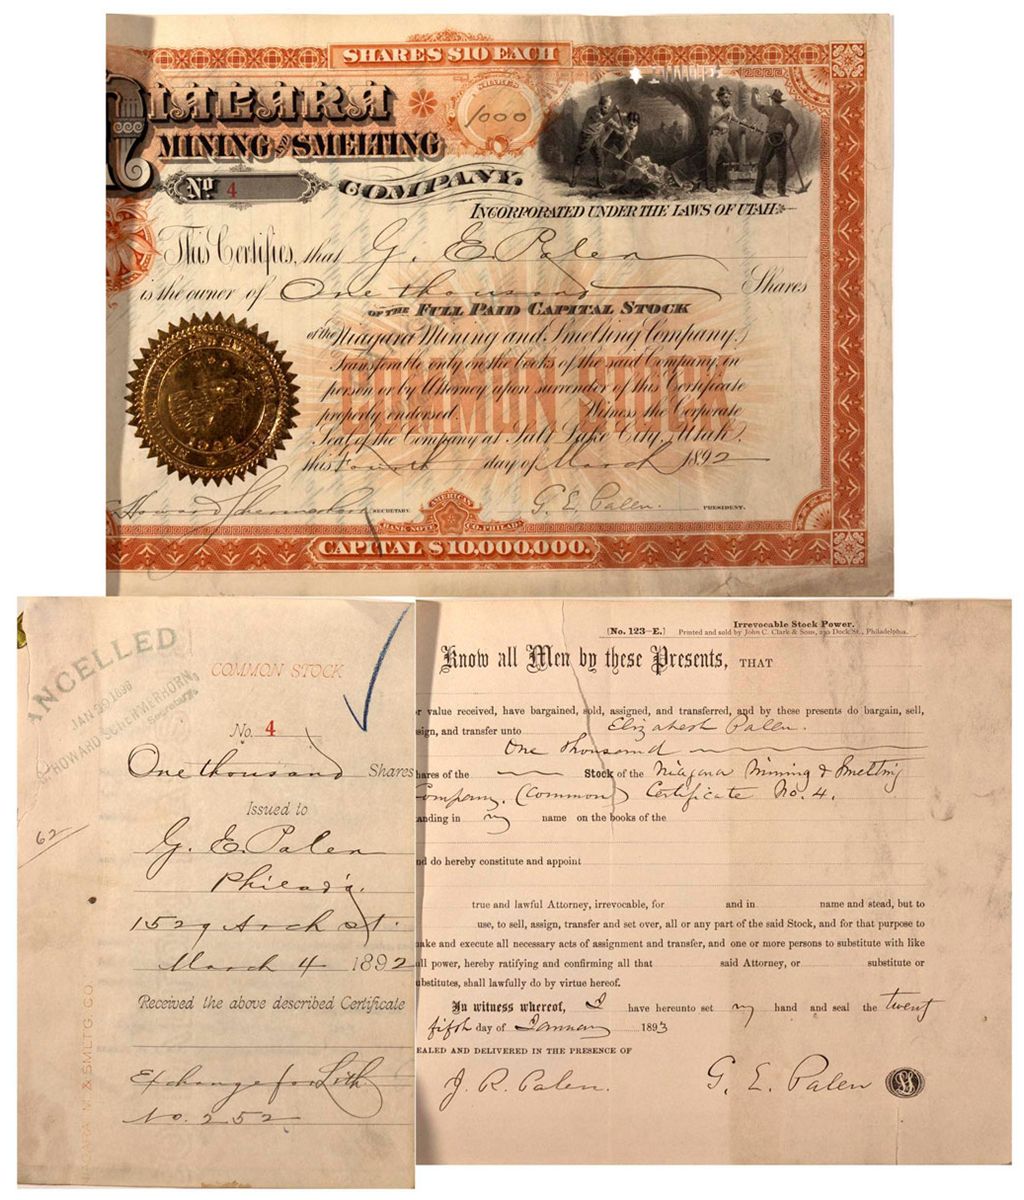 SHARES $10 EACH
NIAGARA
MINING AND SMELTING
COMPANY.
SHARES
1000
No 4
INCORPORATED UNDER THE LAWS OF UTAH
This Certifies, that G. E. Palen
is the owner of One thousand Shares
OF THE FULL PAID CAPITAL STOCK
of the Niagara Mining and Smelting Company.
Transferable only on the books of the said Company, in
person or by Attorney upon surrender of this Certificate
properly endorsed. Witness the Corporate
Seal of the Company at Salt Lake City, Utah,
this Fourth day of March 1892
COMMON STOCK
Howard Schermerhorn SECRETARY. G. E. Palen. PRESIDENT.
AMERICAN
BANK NOTE CO. PHILAD
CAPITAL $10,000,000.
ANCELLED
JAN 1896
HOWARD SCHERMERHORN
Secretary
COMMON STOCK
No. 4
One thousand Shares
Issued to
G. E. Palen
Philad'a.
1529 Arch St.
March 4 1892
Received the above described Certificate
Exchange for Lith
No. 252
62
AGARA M. & SMLT'G CO.
[No. 123–E.] Irrevocable Stock Power.
Printed and sold by John C. Clark & Sons, 230 Dock St., Philadelphia.
Know all Men by these Presents, THAT
r value received, have bargained, sold, assigned, and transferred, and by these presents do bargain, sell,
sign, and transfer unto Elizabeth Pallen.
One thousand
hares of the Stock of the Niagara Mining & Smelting
Company. (Common) Certificate No. 4.
anding in my name on the books of the
nd do hereby constitute and appoint
true and lawful Attorney, irrevocable, for and in name and stead, but to
use, to sell, assign, transfer and set over, all or any part of the said Stock, and for that purpose to
ake and execute all necessary acts of assignment and transfer, and one or more persons to substitute with like
ull power, hereby ratifying and confirming all that said Attorney, or substitute or
ubstitutes, shall lawfully do by virtue hereof.
In witness whereof, I have hereunto set my hand and seal the twenty
fifth day of January 1893
EALED AND DELIVERED IN THE PRESENCE OF
J. R. Palen. G. E. Palen